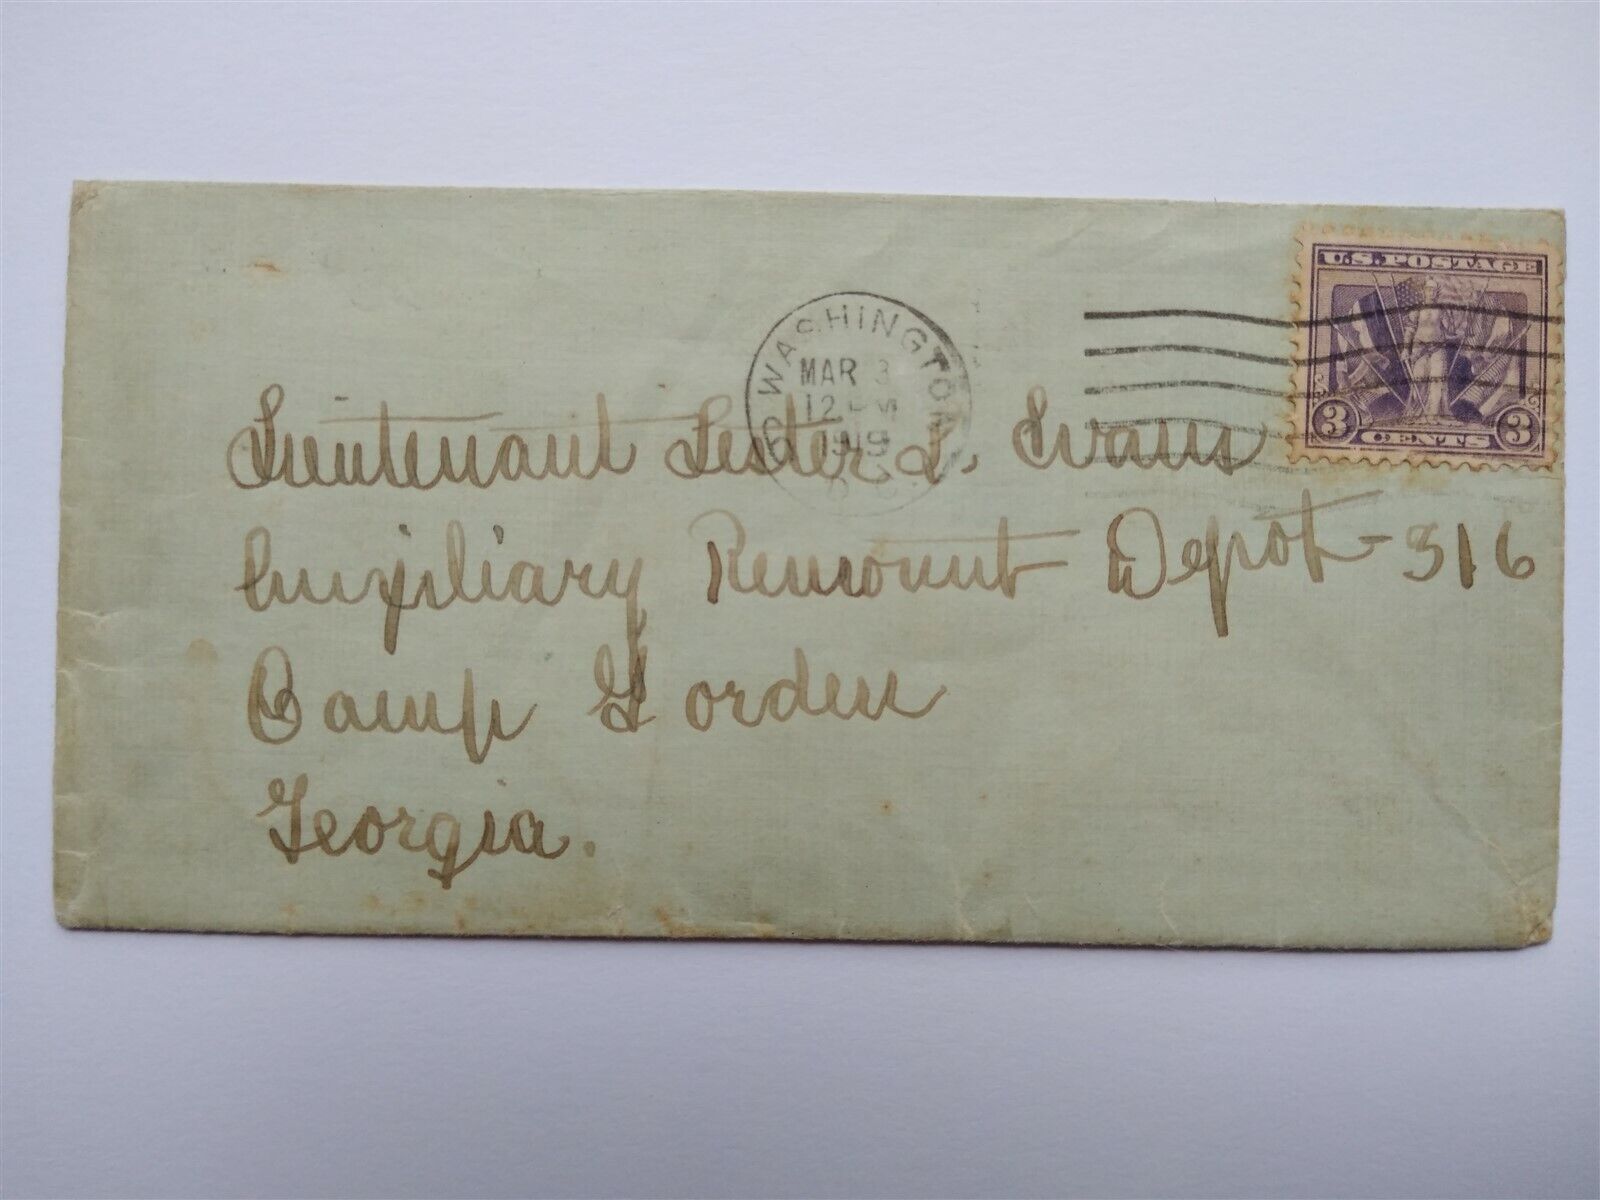 U.S. POSTAGE
3 CENTS 3
WASHINGTON
MAR 3
12 PM
1919
D.C.
Lieutenant Lester L. Evans
Auxiliary Remount Depot - 316
Camp Gorden
Georgia.